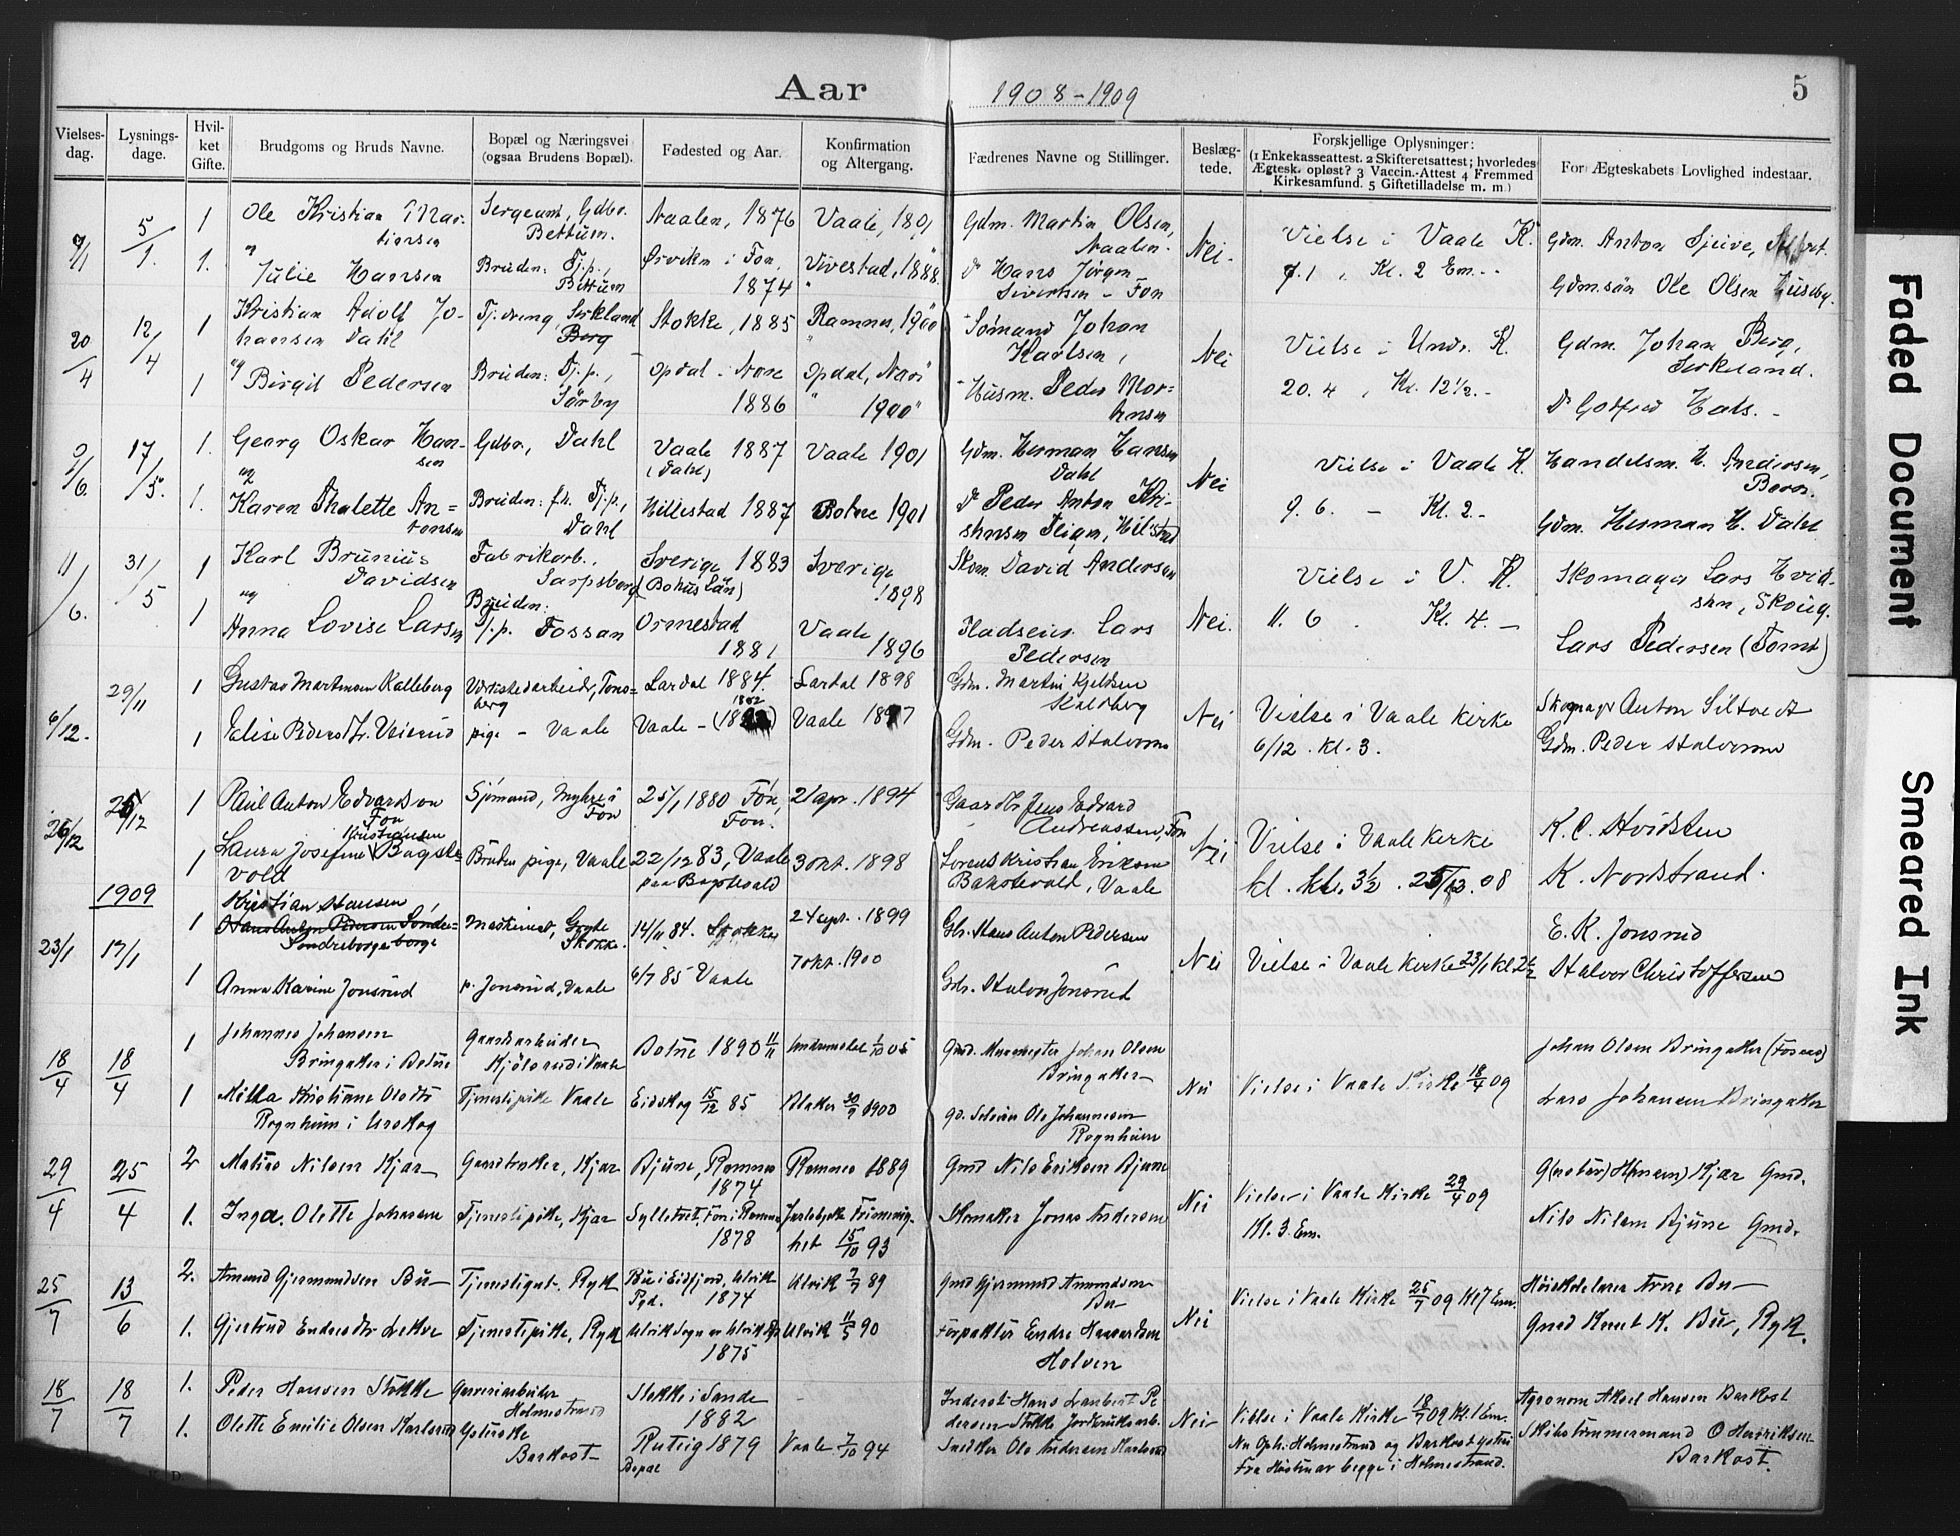 Aar 1908-1909
5
Vielses-dag.
Lysnings-dage.
Hvil-ket Gifte.
Brudgoms og Bruds Navne.
Bopæl og Næringsvei (ogsaa Brudens Bopæl).
Fødested og Aar.
Konfirmation og Altergang.
Fædrenes Navne og Stillinger.
Beslæg-tede.
Forskjellige Oplysninger: (1 Enkekasseattest. 2 Skifteretsattest; hvorledes Ægtesk. opløst? 3 Vaccin.-Attest 4 Fremmed Kirkesamfund. 5 Giftetilladelse m. m.)
For Ægteskabets Lovlighed indestaar.
5/1. 1 Ole Kristian Mar-
tinsen
Sergeant, Gdbr.
Bettum.
Naalen, 1876
Vaale, 1891
Gdm. Martin Olsen,
Naalen.
Nei.
Vielse i Vaale K.
7.1, Kl. 2 Em.
Gdm. Anton Sjeive,
1. Julie Hansen
Bruden: Tj.p.,
Bettum
Ørviken i Fon,
1874
Vivestad, 1888
Hans Jørgen
Sivertsen - Fon
Gdm.sön Ole Olsen Huseby.
20/4 12/4 1 Kristian Adolf Jo-
hansen Dahl
Tj.dreng, Sirkland
Berg
Stokke, 1885
Ramnes, 1900
Sömand Johan
Karlsen,
Nei
Vielse i Undr. K.
20.4, Kl. 12 1/2.-
Gdm. Johan Berg,
Sirkeland.
1 Birgit Pedersen
Bruden: Tj.p.,
Sörby
Opdal i Nore
1886
Opdal, Nore
1900
Husm. Peder Mor-
tensen
Godfred Hals. -
9/6. 17/5. 1. Georg Oskar Han-
sen
Gdbr., Dahl
Vaale 1887
(Dahl)
Vaale 1901
Gdm. Herman Hansen
Dahl
Nei
Vielse i Vaale K.
9.6. - Kl. 2.-
Handelsm. H. Andersen,
1. Karen Thalette An-
tonsen
Bruden: fh. Tj.p.,
Dahl
Hillestad 1887
Botne 1901
Peder Anton Kri-
stensen
Gdm. Herman H. Dahl
11/6. 31/5 1 Karl Brunius
Davidsen
Fabrikarb.,
Sarpsborg
Sverige 1883
(Bohus Län)
Sverige
1898
Skom. David Andersen
Nei.
Vielse i V. K.
11.6. Kl. 4. -
Skomager Lars Hvid-
sten, Skoug.
1 Anna Lovise Larsen
Bruden:
Tj.p. Fossan
Ormestad
1881
Vaale
1896
Pladseier Lars
Pedersen
Lars Pedersen (Tomt)
6/12. 29/11 1 Gustav Martinsen Kalleberg
Værkstedarbeider, Töns-
berg
Lardal 1884.
Lardal 1898
Gdm. Martin Kjeldsen
Kalleberg
Nei
Vielse i Vaale Kirke
6/12. kl. 3.
Skomager Anton Siltvedt
1 Elise Pedersdtr.
pige - Vaale
Vaale - 1882
Vaale 1897
Gdm. Peder Halvorsen
Gdm. Peder Halvorsen
26/12 25/12 1 Paul Anton Edvardsen
Fon
Sjömand, Myhre i
Fon
25/1 1880 Fon,
Fon.
21 apr. 1894
Gaardbr. Jens Edvard
Andreassen, Fon
Nei
Vielse i Vaale Kirke
kl. 3 1/2. 25/12.08
K. C. Hvidsten
1 Laura Josefine Kristiansen Bagste-
vold
Bruden pige, Vaale
22/12 83, Vaale
paa Bagstevold
3 okt. 1898
Lorens Kristian Eriksen
Bakstevold, Vaale
K. Nordstrand.
1909
23/1 17/1 1 Kristian Hansen,
Hans Anton Pedersen Sönder-
Söndreborge borge
Maskinist,
Stokke.
14/11 84. Stokke
24 apr. 1899
Gbr. Hans Anton Pedersen
Nei
Vielse i Vaale Kirke 23/1 kl. 2 1/2
E. K. Jonsrud
1 Anna Karine Jonsrud
p. Jonsrud, Vaale
6/7 85 Vaale
7 okt. 1900
Gbr. Halvor Jonsrud
Halvor Christoffersen
18/4 18/4 1 Johannes Johansen
Bringaker i Botne
Gaardsarbeider
Kjölsrud i Vaale
Botne 1890 11/11
Undrumsdal 1/10 05
Gmd. Murmester Johan Olsen
Bringaker
Nei
Vielse i Vaale Kirke 18/4 09
Johan Olsen Bringaker (Fosnes)
1 Milla Kristiane Olsdtr
Rognheim i Urskog
Tjenestepike Vaale
Eidskog 15/12 85
Blaker 30/9 1900
Ole Johannesen
Rognheim
Lars Johansen Bringaker
29/4 25/4 2 Matias Nilsen Kjær
Gaardbruker, Kjær
Bjune, Ramnes
1874
Ramnes 1889
Gmd Nils Eriksen Bjune
Nei
Vielse i Vaale Kirke 29/4 09
Kl. 3. Em.
G(ustav) H(ansen) Kjær Gmd.
1. Inga. Olette Johansen
Tjenestepike, Kjær
Fon i Ramnes
1878
Jarlsbygke Frimenig-
het 15/10 93
Skomaker Jonas Andersen
Nils Nilsen Bjune Gmd.
25/7 13/6 2. Amund Gjermundsen Bu
Tjenestegut. Ryk
Bu i Eidfjord, Ulvik
Pgd. 1874
Ulvik 7/7 89
Gmd Gjermund Amundsen
Bu
Nei
Vielse i Vaale Kirke 25/7 09 Kl 7 Em.
Höiskolelærer Arne Bu
1. Gjertrud Endresdtr Lekve
Tjenestepike, Ryk
Ulvik Sogn av Ulvik
1875
Ulvik 11/5 90
Forpakter Endre Haavardsen
Holven
Gmd Knut K. Bu, Ryk.
18/7 18/7 1. Peder Hansen Stokke
Garveriarbeider
Holmestrand
Stokke i Sande
1882
-
Inderst Hans Lambert Pe-
dersen Stokke Jordbruksarb.
Nei
Vielse i Vaale Kirke 18/7 09 Kl. 1 Em.
Nu Oph. Holmestrand og Barkost
Fra Höstmar begge i Holmestrand.
Agronom Aksel Hansen Barkost
1. Olette Emilie Olsen Karlsrud
Barkost
Rutsig 1879
Bopæl
Vaale 7/10 94
Snedker Ole Andersen Karlsrud
Skibstömmermand O Henriksen
Barkost.
Faded Document
Smeared Ink